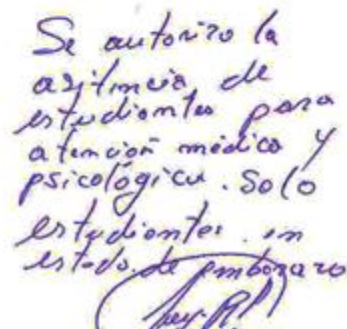 Se autorizo la
asitencia de
estudiantes para
atención médica y
psicológica. Solo
estudiantes en
estado de embarazo